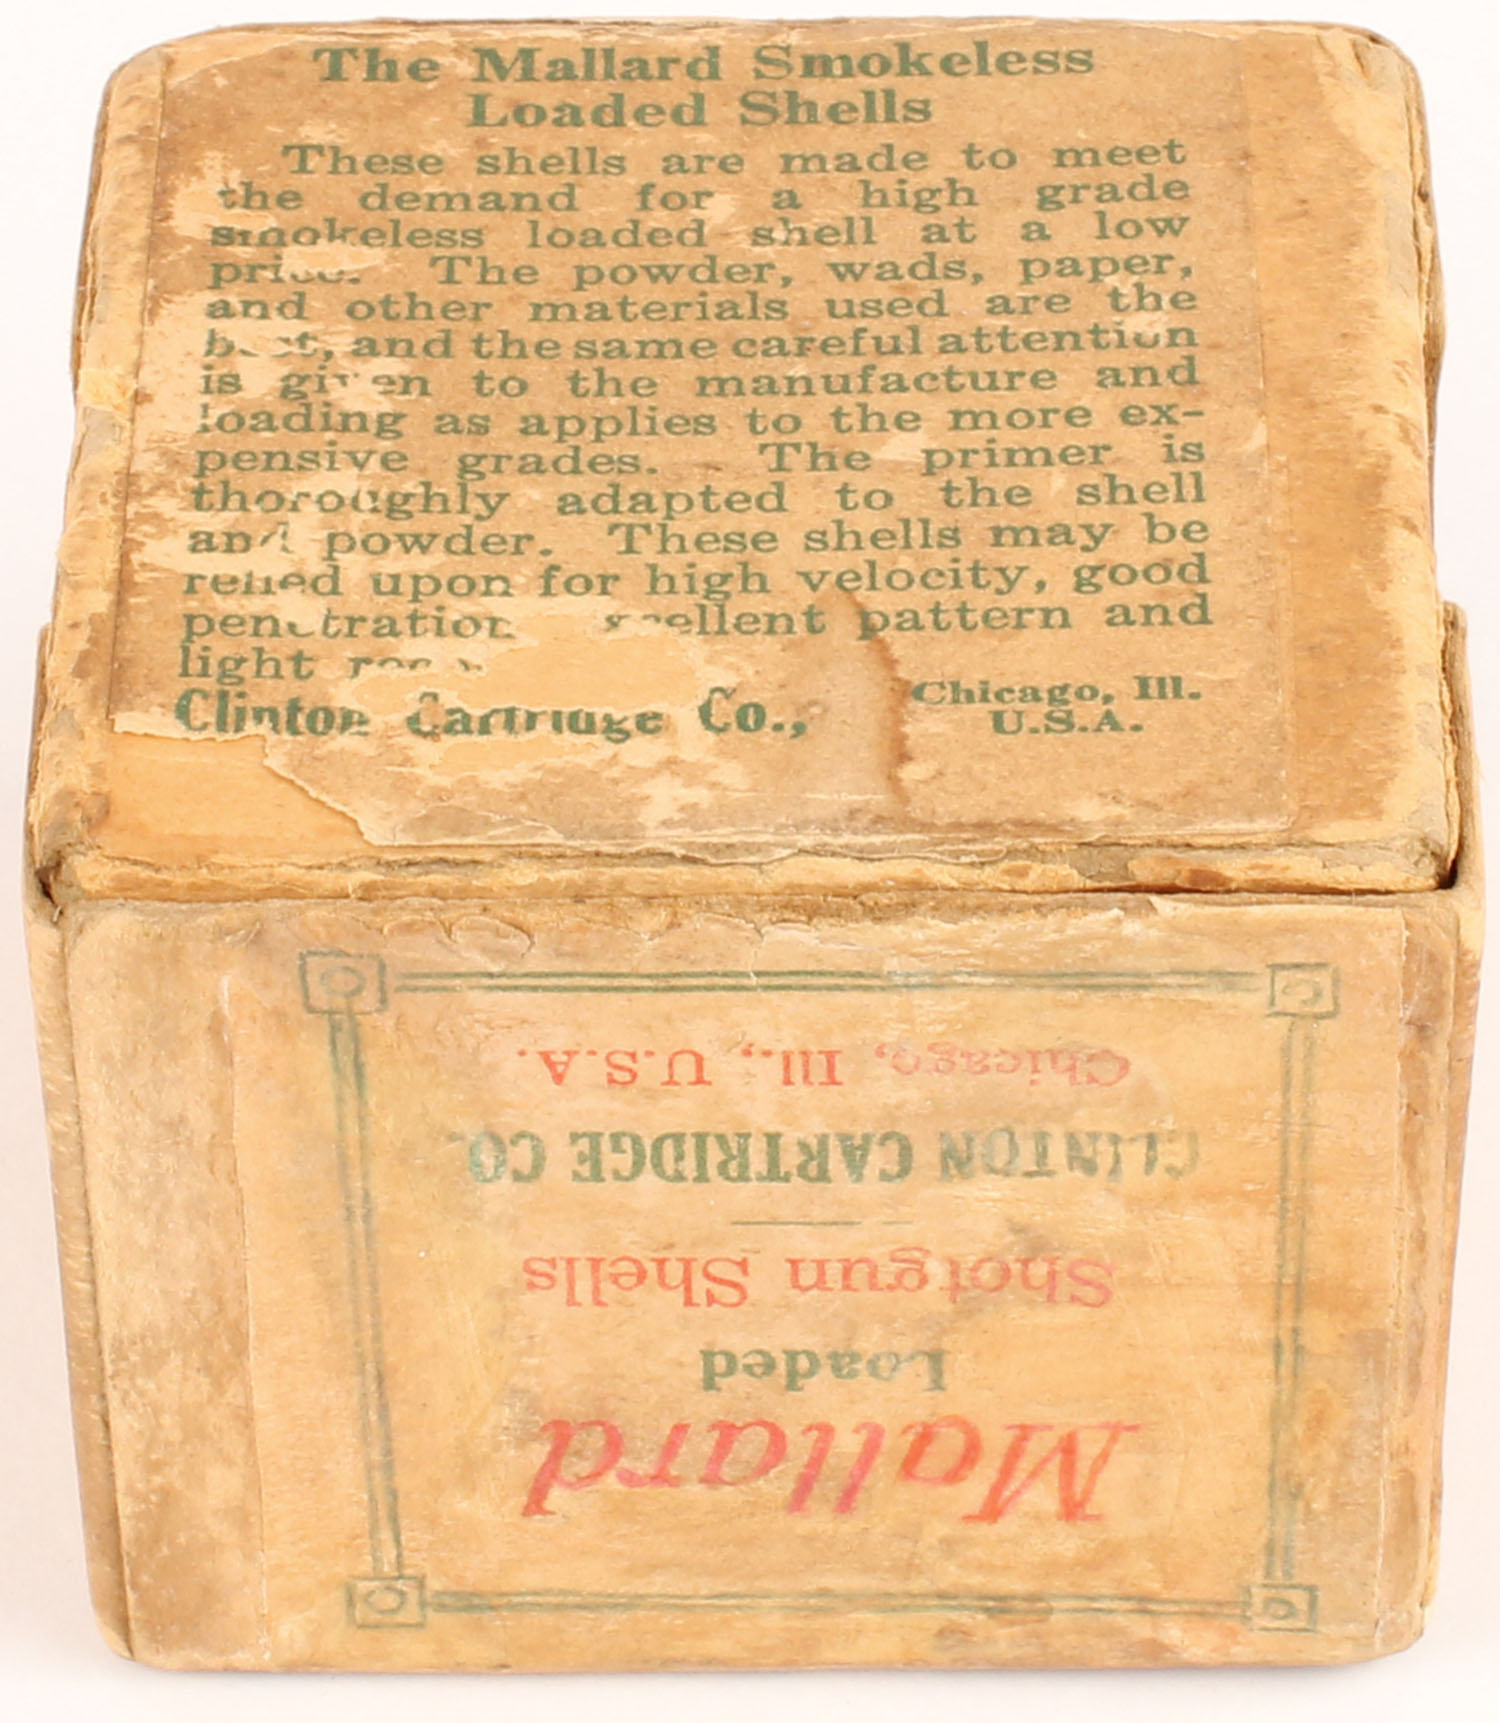 The Mallard Smokeless
Loaded Shells
These shells are made to meet
the demand for a high grade
smokeless loaded shell at a low
price. The powder, wads, paper,
and other materials used are the
best, and the same careful attention
is given to the manufacture and
loading as applies to the more ex-
pensive grades. The primer is
thoroughly adapted to the shell
and powder. These shells may be
relied upon for high velocity, good
penetration excellent pattern and
light
Clinton Cartridge Co., Chicago, Ill.
U.S.A.
Mallard
Loaded
Shotgun Shells
CLINTON CARTRIDGE CO.
Chicago, Ill., U.S.A.